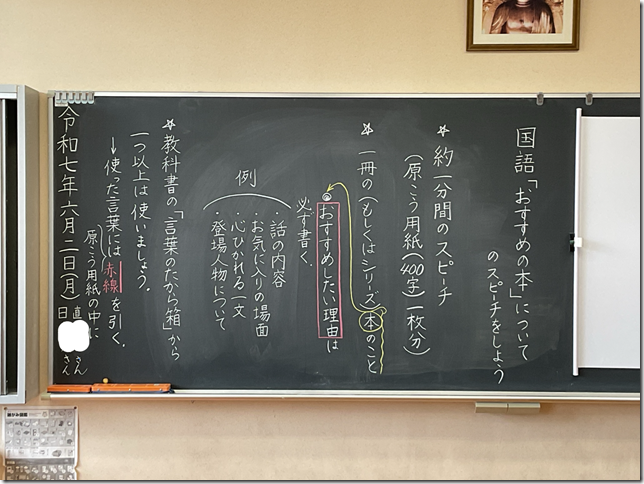 国語「おすすめの本」について
のスピーチをしよう
☆約一分間のスピーチ
(原こう用紙(400字)一枚分)
☆一冊の(もしくはシリーズ)本のこと
◎おすすめしたい理由は
必ず書く。
例
・話の内容
お気に入りの場面
心ひかれる一文
・登場人物について
☆教科書の「言葉のたから箱」から
一つ以上は使いましょう。
→使った言葉には赤線を引く。
原こう用紙の中に
令和七年六月二日(月)
日直
さん
さん